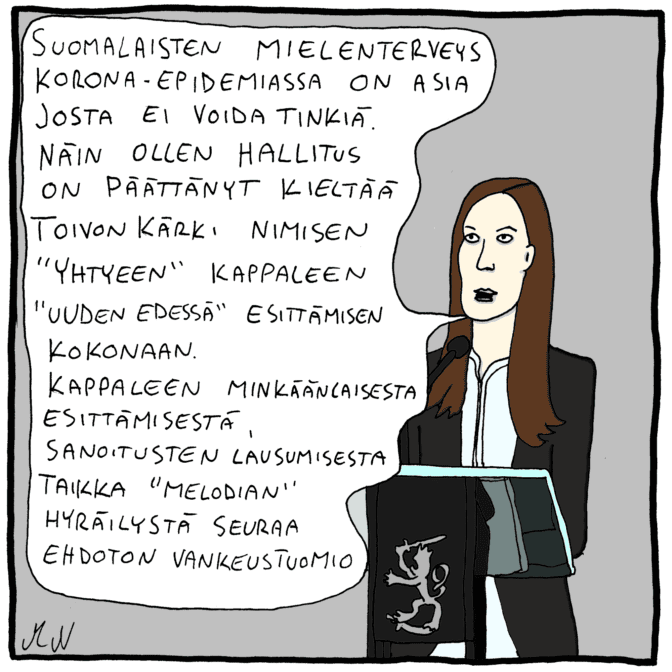 SUOMALAISTEN MIELENTERVEYS
KORONA-EPIDEMIASSA ON ASIA
JOSTA EI VOIDA TINKIÄ.
NÄIN OLLEN HALLITUS
ON PÄÄTTÄNYT KIELTÄÄ
TOIVON KÄRKI NIMISEN
"YHTYEEN" KAPPALEEN
"UUDEN EDESSÄ" ESITTÄMISEN
KOKONAAN.
KAPPALEEN MINKÄÄNLAISESTA
ESITTÄMISESTÄ,
SANOITUSTEN LAUSUMISESTA
TAIKKA "MELODIAN"
HYRÄILYSTÄ SEURAA
EHDOTON VANKEUSTUOMIO
MN